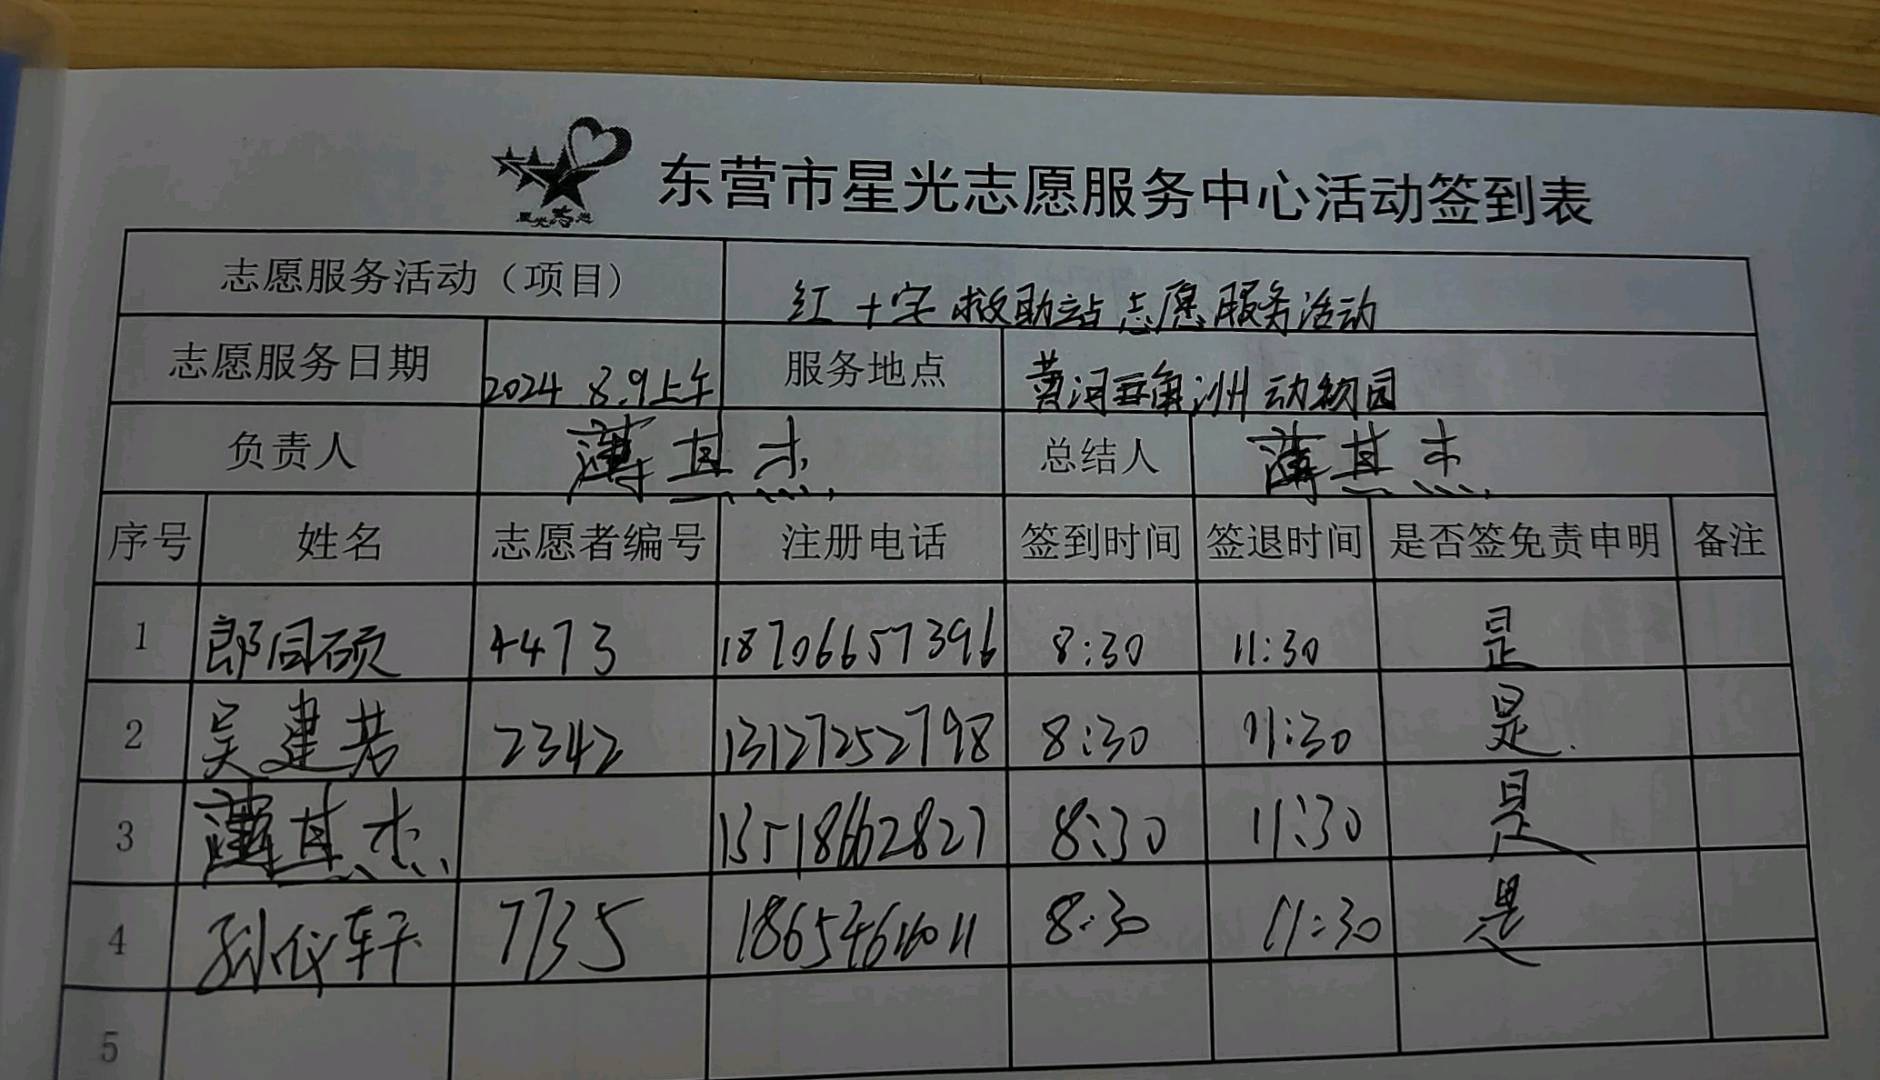 星光志愿
东营市星光志愿服务中心活动签到表
志愿服务活动（项目） 红十字救助站志愿服务活动
志愿服务日期 2024 8.9上午 服务地点 黄河三角洲动物园
负责人 薄其杰 总结人 薄其杰
序号 姓名 志愿者编号 注册电话 签到时间 签退时间 是否签免责申明 备注
1 郎同硕 4473 18706657396 8:30 11:30 是
2 吴建若 2342 13127252798 8:30 11:30 是.
3 薄其杰 13518662827 8:30 11:30 是
4 孙仪轩 7735 8:30 11:30 是
5